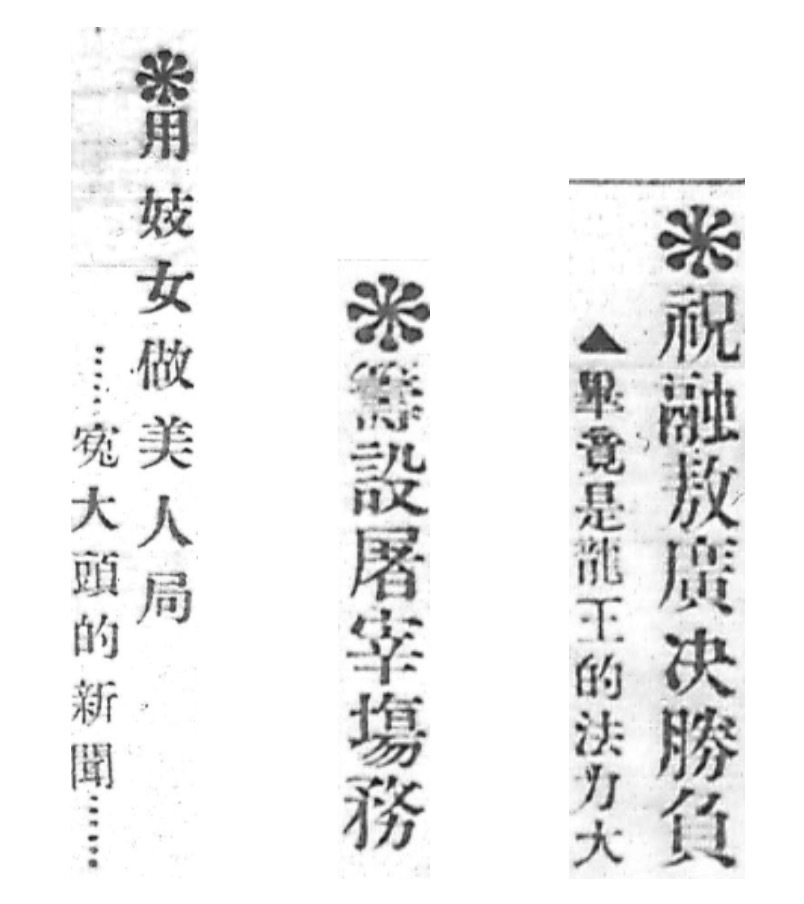 ❋祝融敖廣决勝負
▲畢竟是龍王的法力大
❋籌設屠宰塲務
❋用妓女做美人局
……寃大頭的新聞……